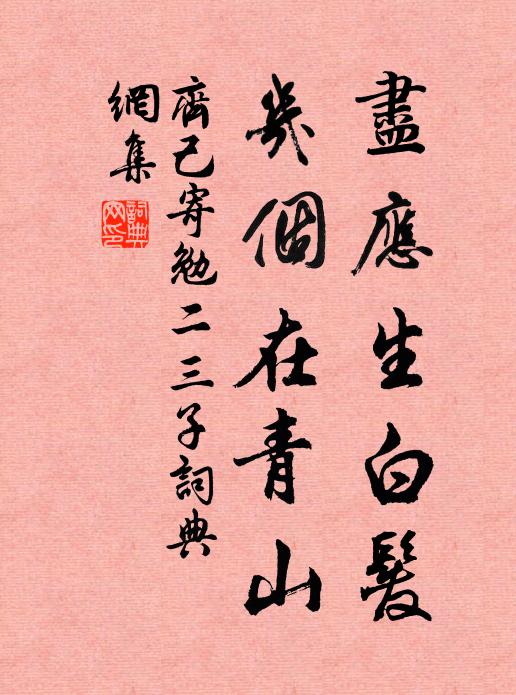 盡應生白髮
幾個在青山
齊己寄勉二三子詞典
網集
詞典
網印